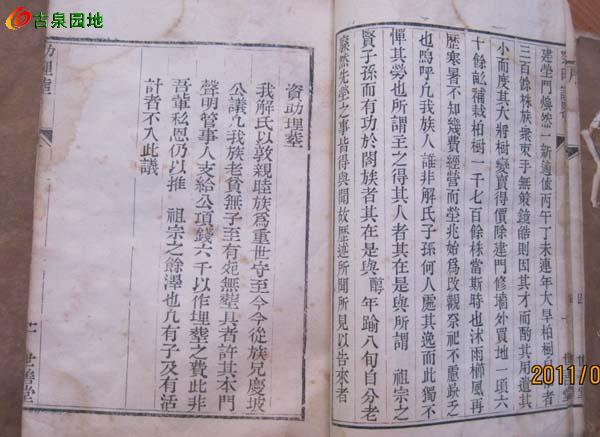 古泉园地
建塋門煥然一新適值丙午丁未連年大旱柏樹
三百餘株族衆束手無
小而度其大將樹變賣得價除建門修墻外買地一頃六
十餘畝補栽柏樹一千七百餘株當斯時也沐雨櫛風再
歷寒暑不知幾費經營而塋兆始爲改觀祭祀不
也嗚呼凡我族人誰非解氏子孫何人處其逸而此獨不
憚其勞也所謂主之得其人者其在是與所謂 祖宗之
賢子孫而有功於閤族者其在是與 年踰八旬自分老
然先塋之事皆得與聞故歷述所聞所見以告來者
資助理塟
我解氏以敦親睦族爲重世守至今今從族兄慶坡
公議凡我族老貧無子至有死無塟具者許其本門
聲明管事人支給公項錢六千以作埋塟之費此非
吾輩私恩仍以推 祖宗之餘澤也凡有子及有活
計者不入此議
助理塟
世譜堂
2011/0